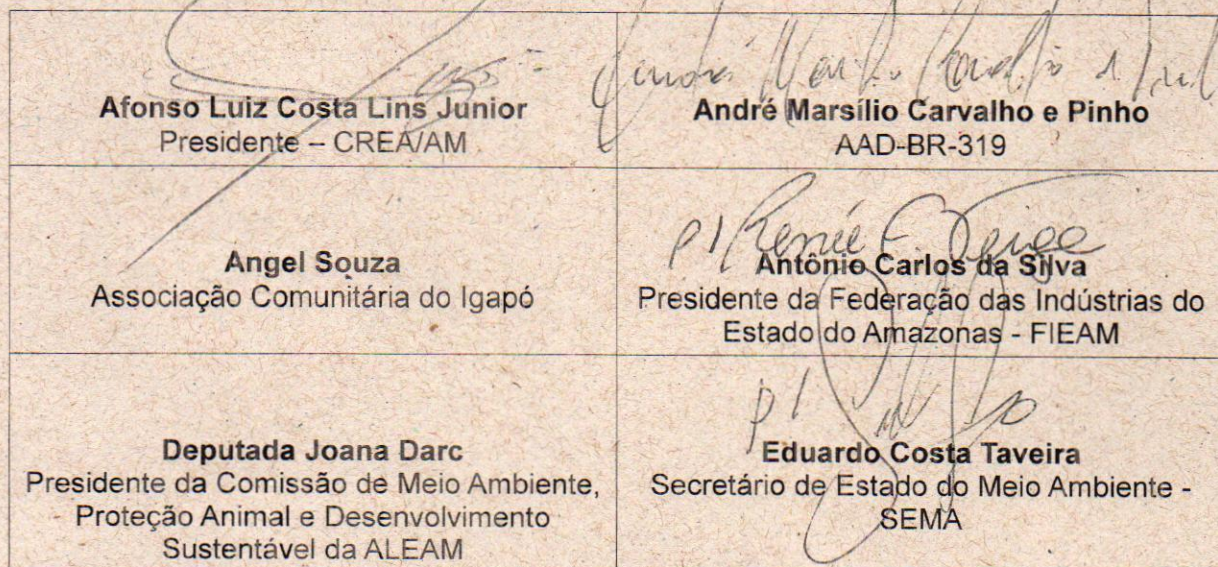 Afonso Luiz Costa Lins Junior
Presidente – CREA/AM
André Marsílio Carvalho e Pinho
AAD-BR-319
Angel Souza
Associação Comunitária do Igapó
p/ Renée
Antônio Carlos da Silva
Presidente da Federação das Indústrias do
Estado do Amazonas - FIEAM
Deputada Joana Darc
Presidente da Comissão de Meio Ambiente,
Proteção Animal e Desenvolvimento
Sustentável da ALEAM
p/
Eduardo Costa Taveira
Secretário de Estado do Meio Ambiente -
SEMA